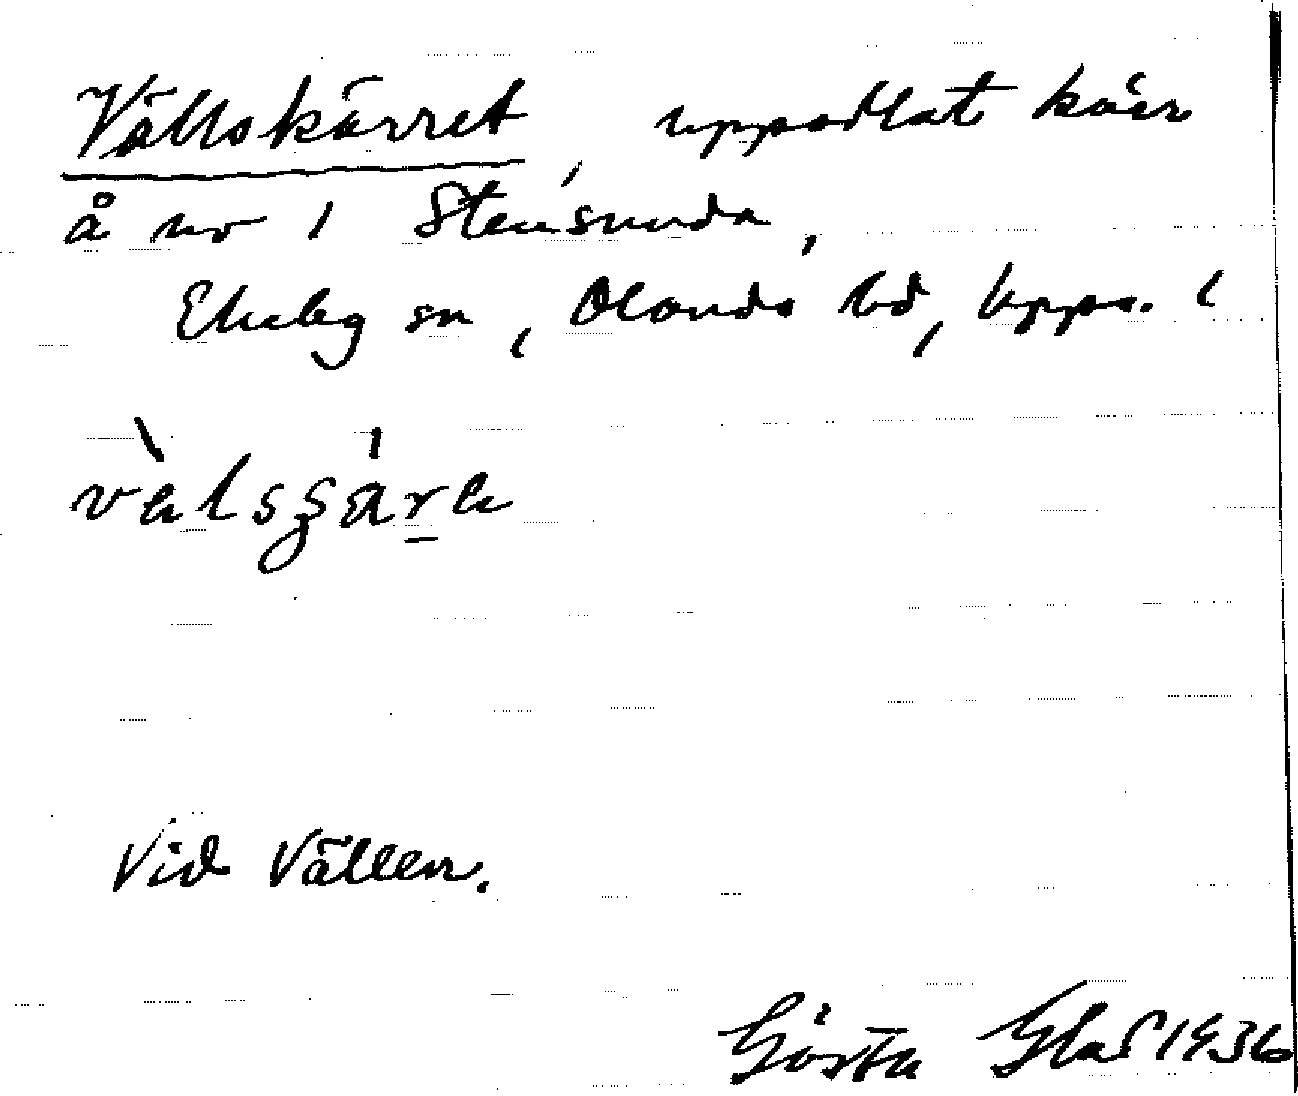 Vällskärret, uppodlat kärr
å nr 1 Stensunda,
Ekeby sn, Olands hd, Upps. l
Vid Vällen.
Gösta Glas 1936